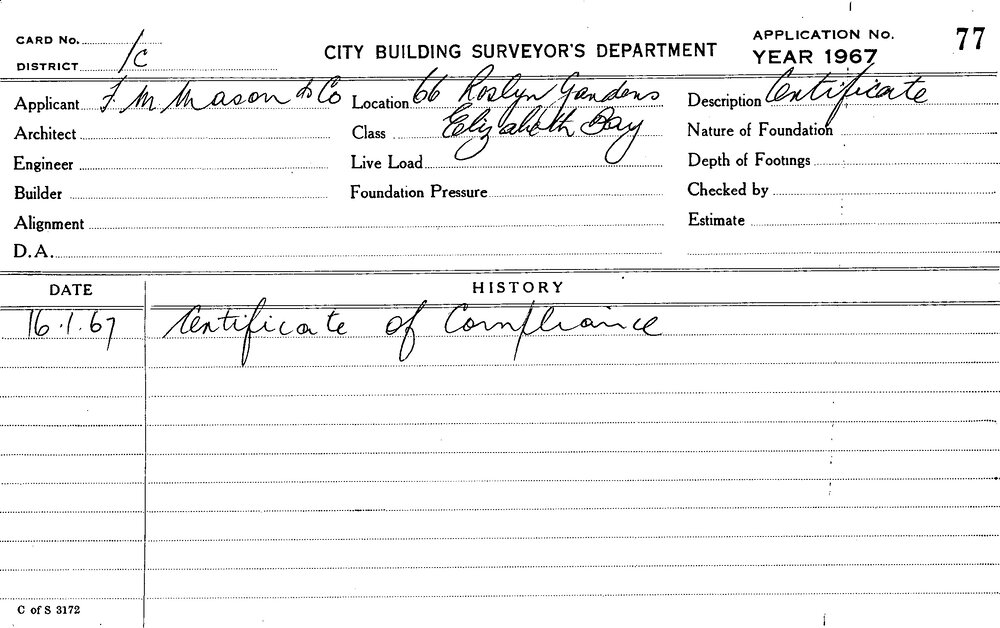 CARD No.
DISTRICT 1c
CITY BUILDING SURVEYOR'S DEPARTMENT
APPLICATION No. 77
YEAR 1967
Applicant F. M. Mason & Co Location 66 Roslyn Gardens Description Certificate
Architect Class Elizabeth Bay Nature of Foundation
Engineer Live Load Depth of Footings
Builder Foundation Pressure Checked by
Alignment Estimate
D.A.
DATE HISTORY
16.1.67 Certificate of Compliance
C of S 3172